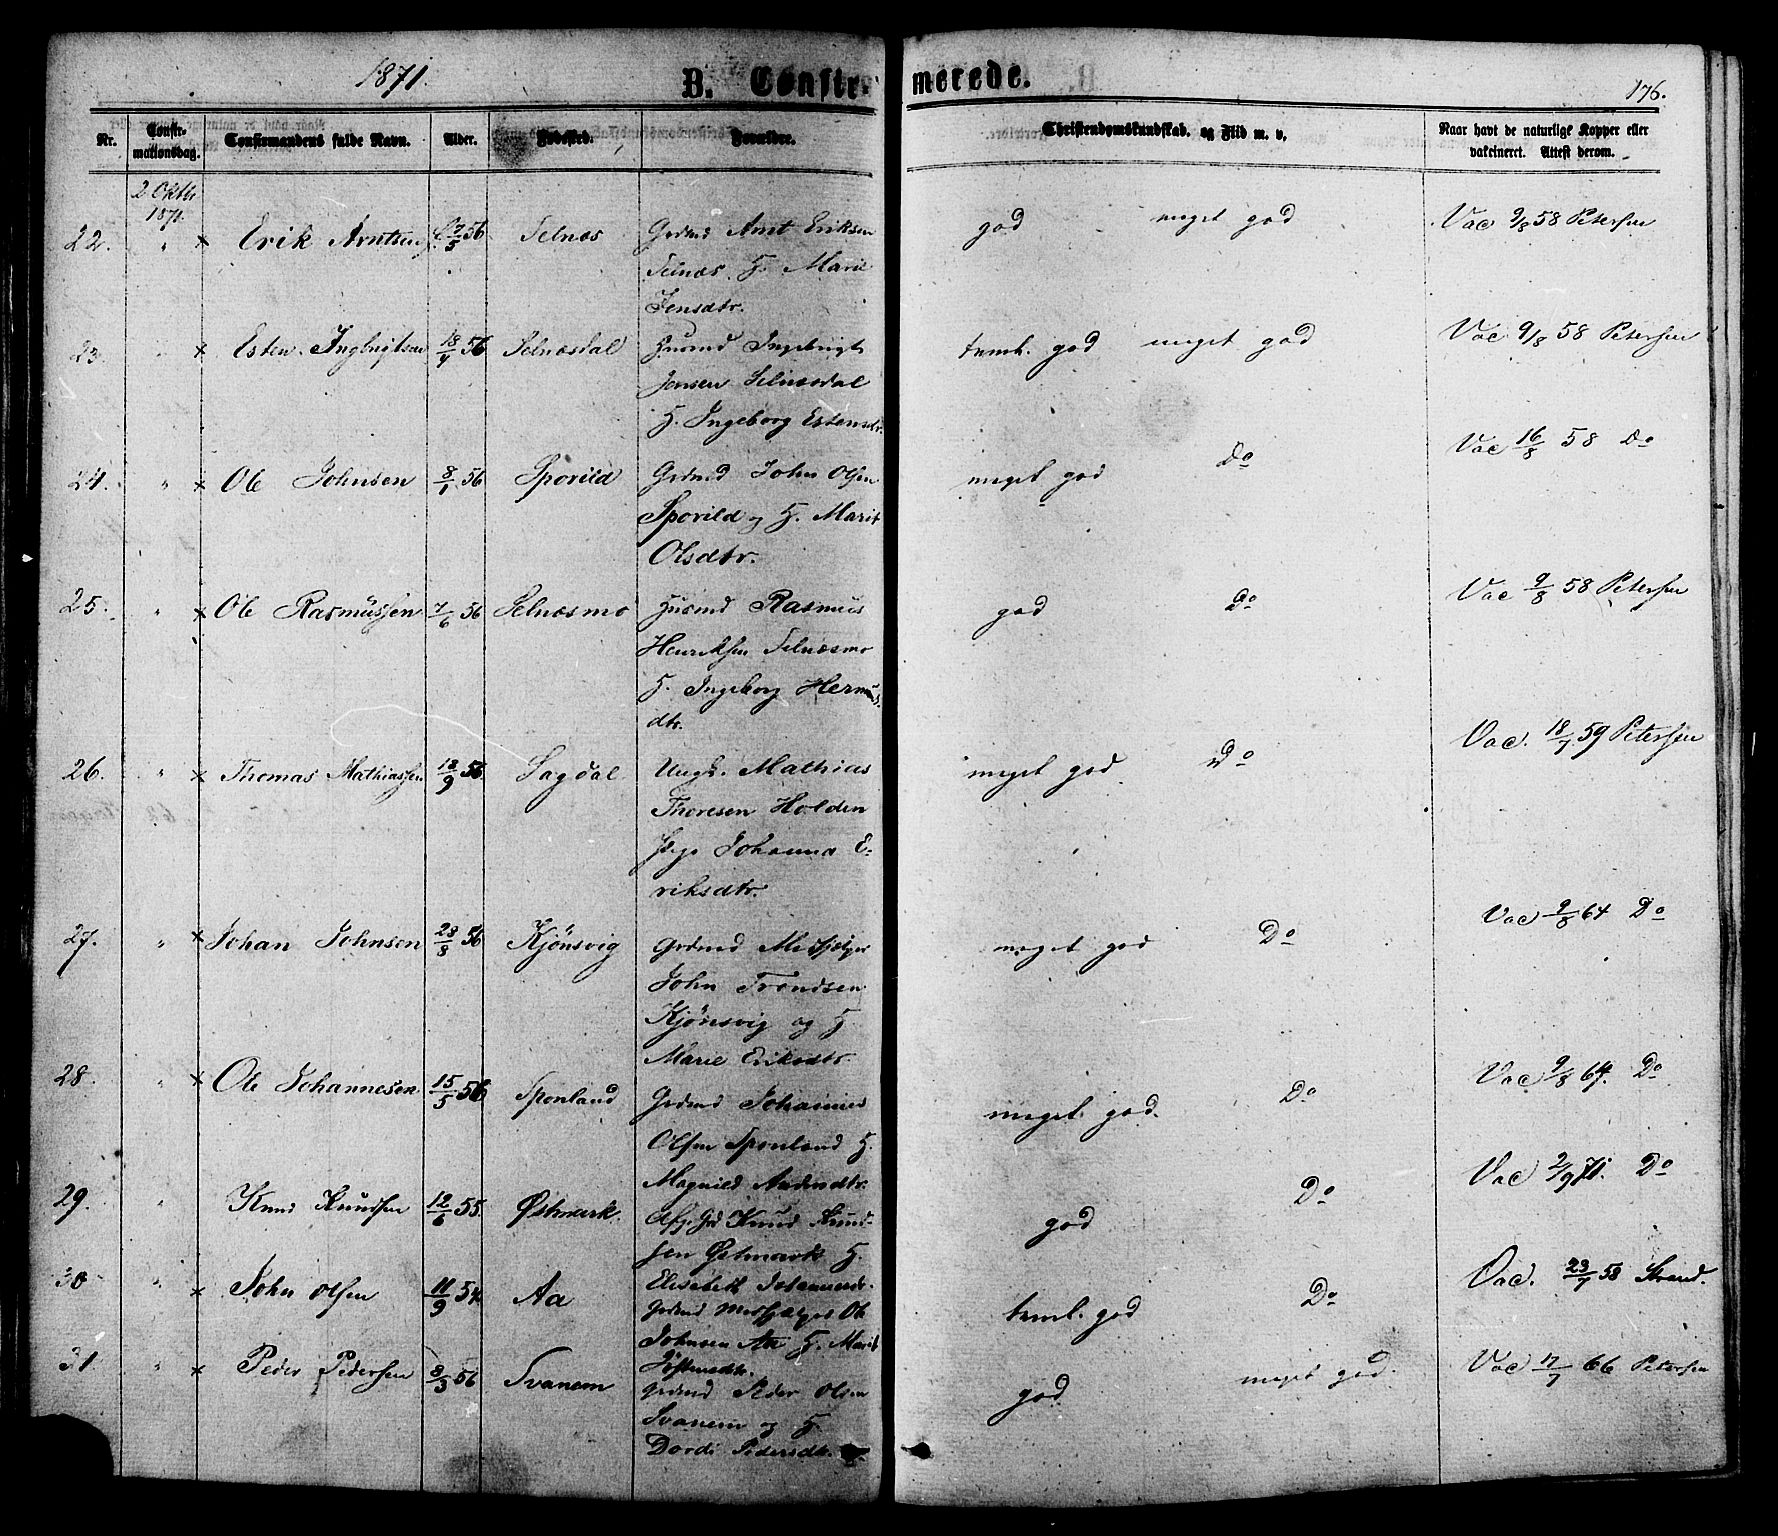 1871.
B. Confirmerede.
176.
Nr.
Confirmationsdag.
Confirmandens fulde Navn.
Alder.
Fødested.
Forældre.
Christendomskundskab, og Flid m. v.
Naar havt de naturlige Kopper eller vakcineret. Attest derom.
2 Oktb 1871.
22. " × Erik Arntsen 7/5 56 Selnæs Grdmd Arnt Eriksen god meget god Vac 9/8 58 Petersen
Selnæs. H. Marie
Jensdtr.
23. " × Esten Ingbrigtsen 18/4 56 Selnæsdal Husmd Ingebrigt teml. god meget god Vac 9/8 58 Petersen
Jensen Selnæsdal
H. Ingeborg Estensdtr.
24. " × Ole Johnsen 8/1 56 Sporild Grdmd John Olsen meget god Do Vac 16/8 58 Do
Sporild og H. Marit
Olsdtr.
25. " × Ole Rasmussen 7/6 56 Selnæsmo Husmd Rasmus god Do Vac 9/8 58 Petersen
Henriksen Selnæsmo
H. Ingeborg
dtr.
26. " × Thomas Mathiassen 12/9 55 Sagdal Ungk. Mathias meget god Do Vac. 18/7 59 Petersen
Thoresen Holden
Pige Johanna E-
riksdtr.
27. " × Johan Johnsen 28/8 56 Kjönsvig Grdmd Medhjælper meget god Do Vac 9/8 64 Do
John Trondsen
Kjönsvig og H.
Marie Eriksdtr.
28. " × Ole Johannesen 15/5 56 Sponland Grdmd Johannes meget god. Do Vac 9/8 64. Do
Olsen Sponland H.
Magnild
29. " Knud Knudsen 12/6 55. Østmark. Afg. Grd Knud Knud- god Do Vac 2/9 71. Do
sen Østmark H.
Elisabeth
30 " × John Olsen 11/9 54 Aa Grdmd Medhjælper Ole teml. god Do Vac. 23/7 58 Strand.
Johnsen Aa H. Marit
31 " × Peder Pedersen 8/3 56 Svanem Grdmd Peder Olsen god meget god. Vac 17/7 66 Petersen
Svanem og H.
Dordi Pedersdtr.